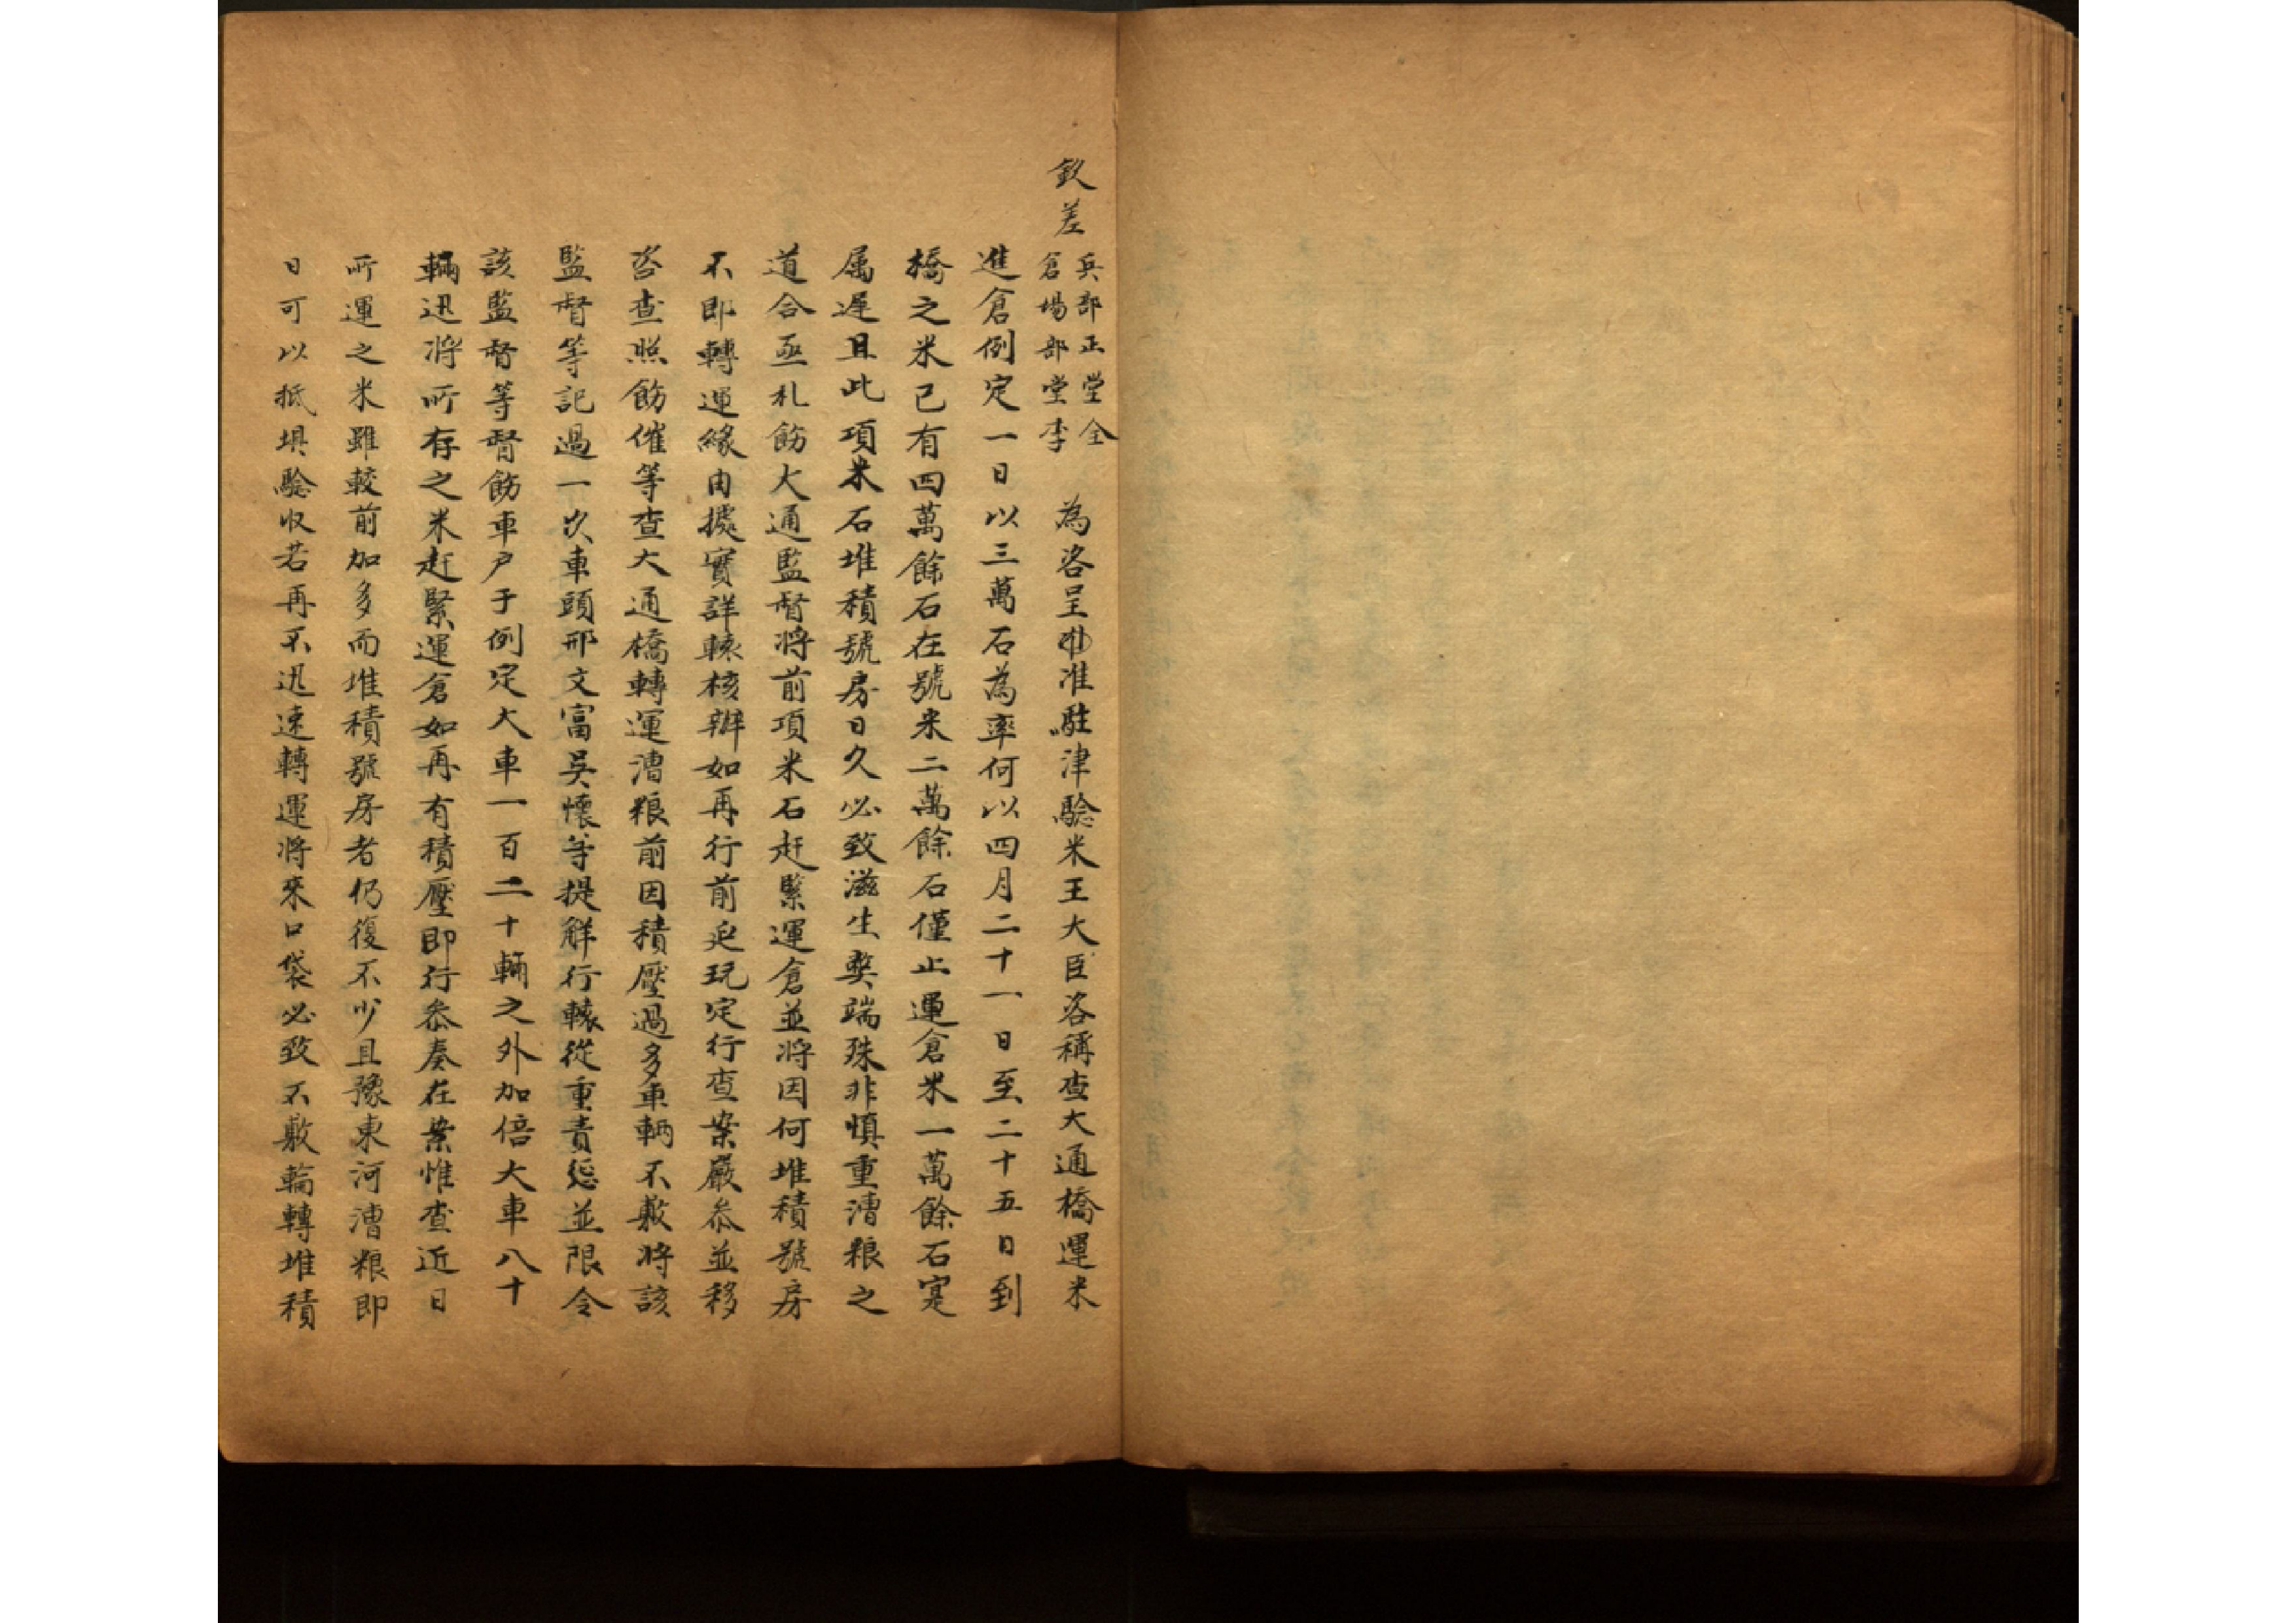 欽差
兵部正堂全
倉場部堂李
為咨呈事准駐津驗米王大臣咨稱查大通橋運米
進倉例定一日以三萬石為率何以四月二十一日至二十五日到
橋之米已有四萬餘石在號米二萬餘石僅止運倉米一萬餘石寔
属遲且此項米石堆積號房日久必致滋生獘端殊非慎重漕粮之
道合亟札飭大通監督將前項米石赶緊運倉並將因何堆積號房
不即轉運緣由據實詳轅核辦如再行前延玩定行查案嚴叅並移
咨查照飭催等查大通橋轉運漕粮前因積壓過多車輌不敷將該
監督等記過一次車頭邢文富吳懷等提觧行轅從重責惩並限令
該監督等督飭車户于例定大車一百二十輛之外加倍大車八十
輛迅將所存之米赶緊運倉如再有積壓即行叅奏在案惟查近日
所運之米雖較前加多而堆積號房者仍復不少且豫東河漕粮即
日可以抵埧驗収若再不迅速轉運將來口袋必致不敷輪轉堆積